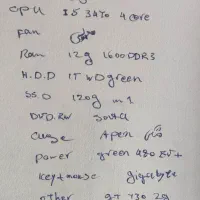 CPU I5 3470 4 core
Fan
Ram 12g 1600 DDR3
H.D.D 1T WD green
SS.D 120g m 1
DVD.RW Sonta
Case Apen
power green 480 EV+
Key+mouse gigabyte
other gt 730 2g